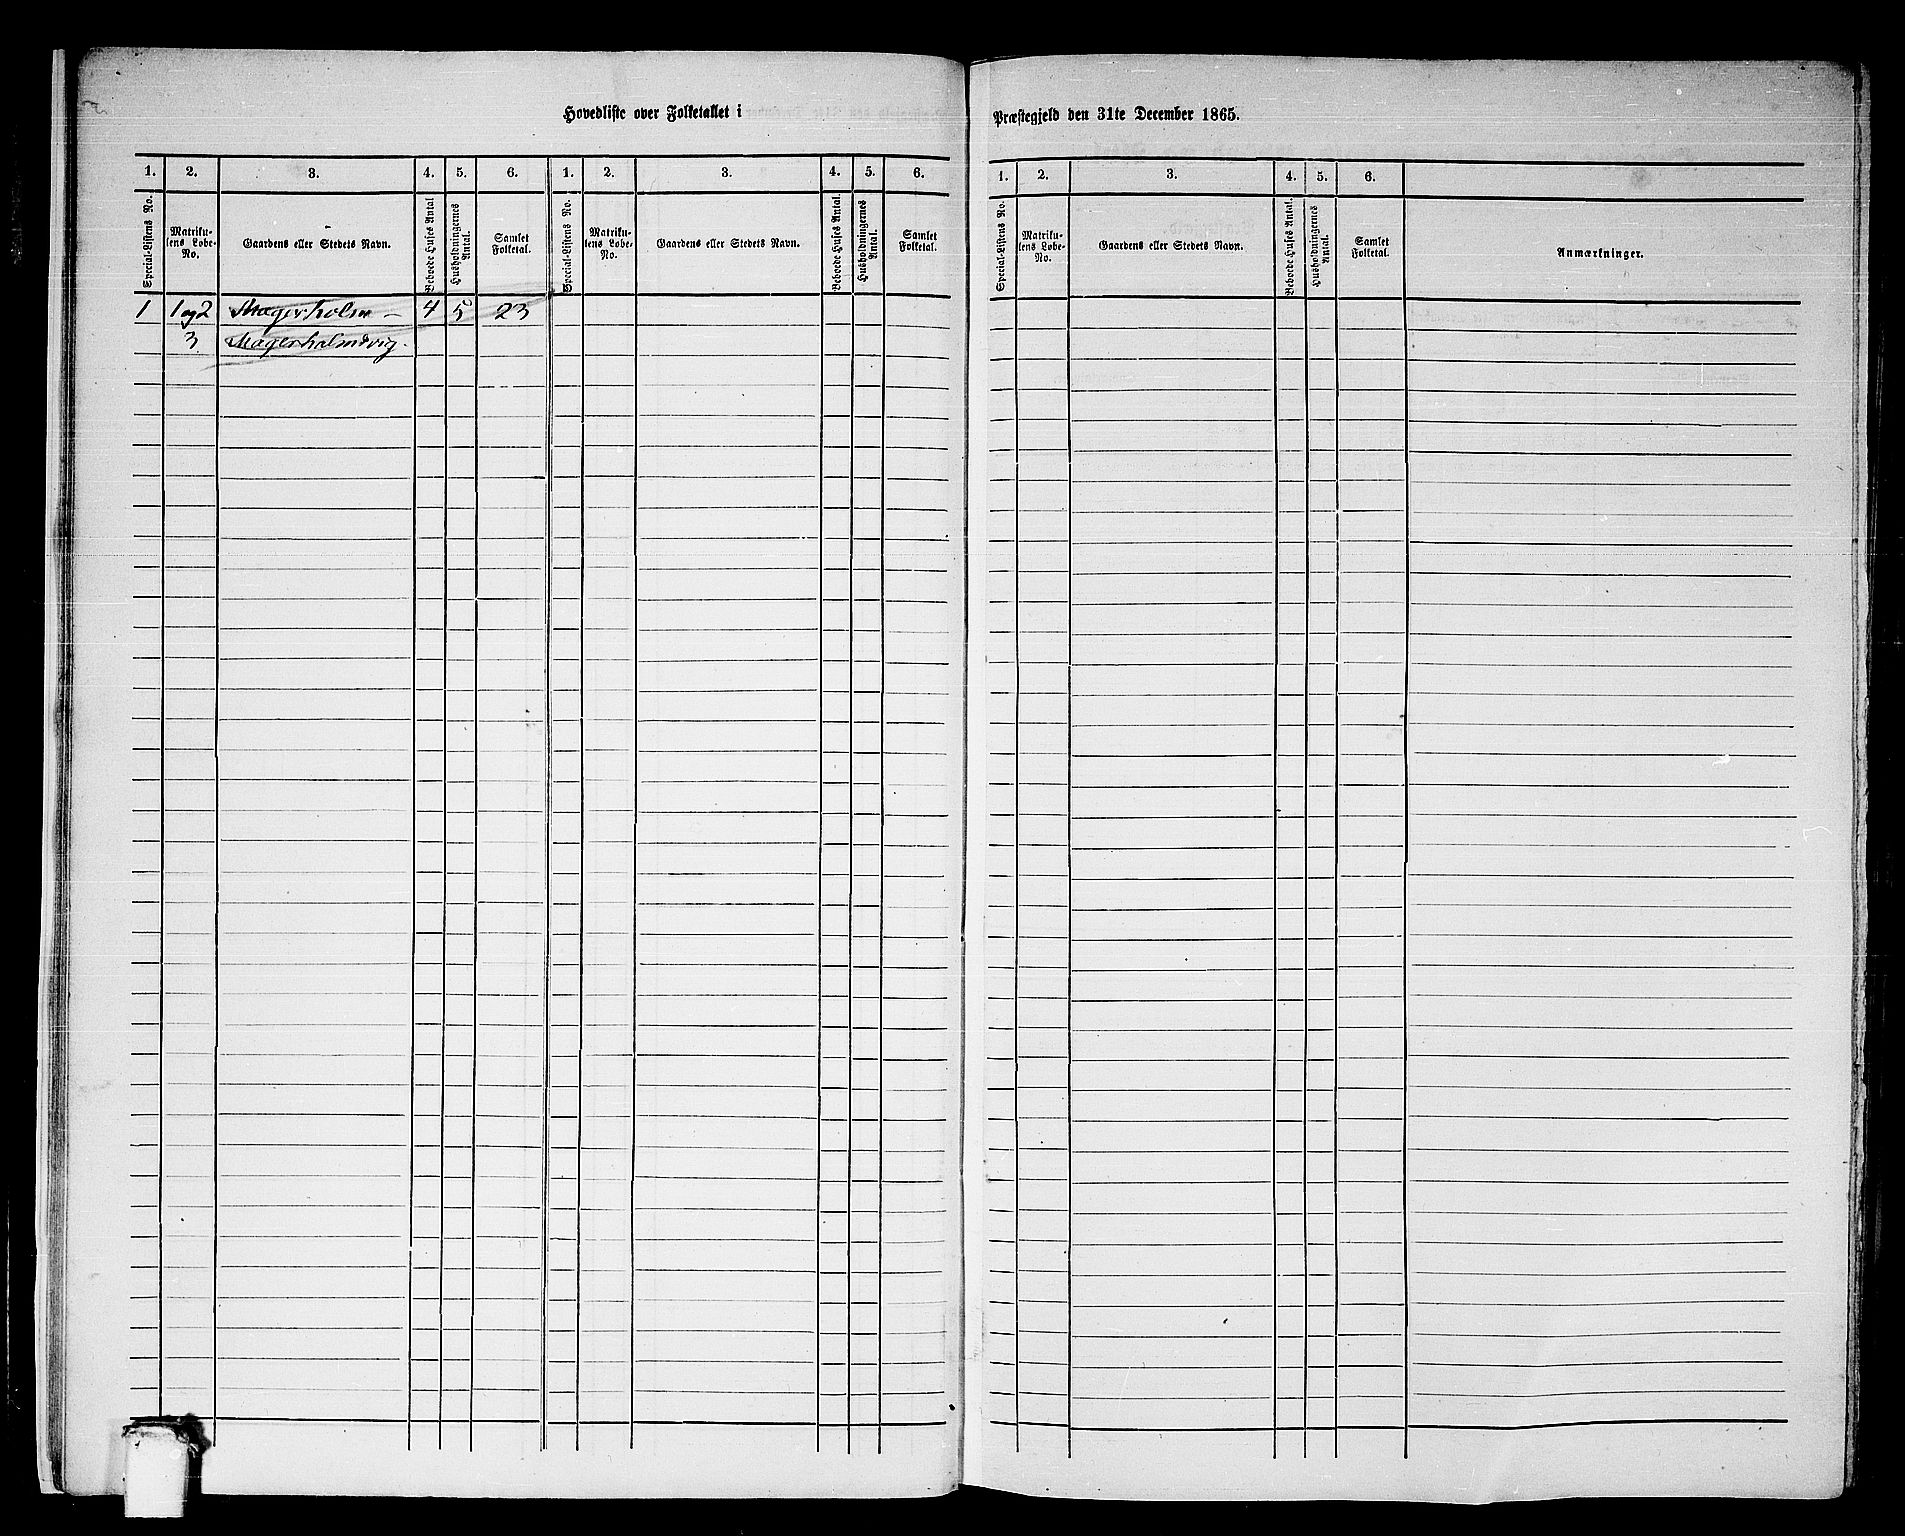 Hovedliste over Folketallet i
Præstegjeld den 31te December 1865.
1. 2. 3. 4. 5. 6. 1. 2. 3. 4. 5. 6.
Special-Listens No.
Matriku-
lens Løbe-
No.
Gaardens eller Stedets Navn.
Beboede Huses Antal
Husholdningernes
Antal.
Samlet
Folketal.
Special-Listens No.
Matriku-
lens Løbe-
No.
Gaardens eller Stedets Navn.
Beboede Huses Antal.
Husholdningernes
Antal.
Samlet
Folketal.
1 1 og 2 Magerholm – 4 5 23
3 Magerholmsvig.
1. 2. 3. 4. 5. 6.
Special-Listens No.
Matriku-
lens Løbe-
No.
Gaardens eller Stedets Navn.
Beboede Huses Antal.
Husholdningernes
Antal.
Samlet
Folketal.
Anmærkninger.